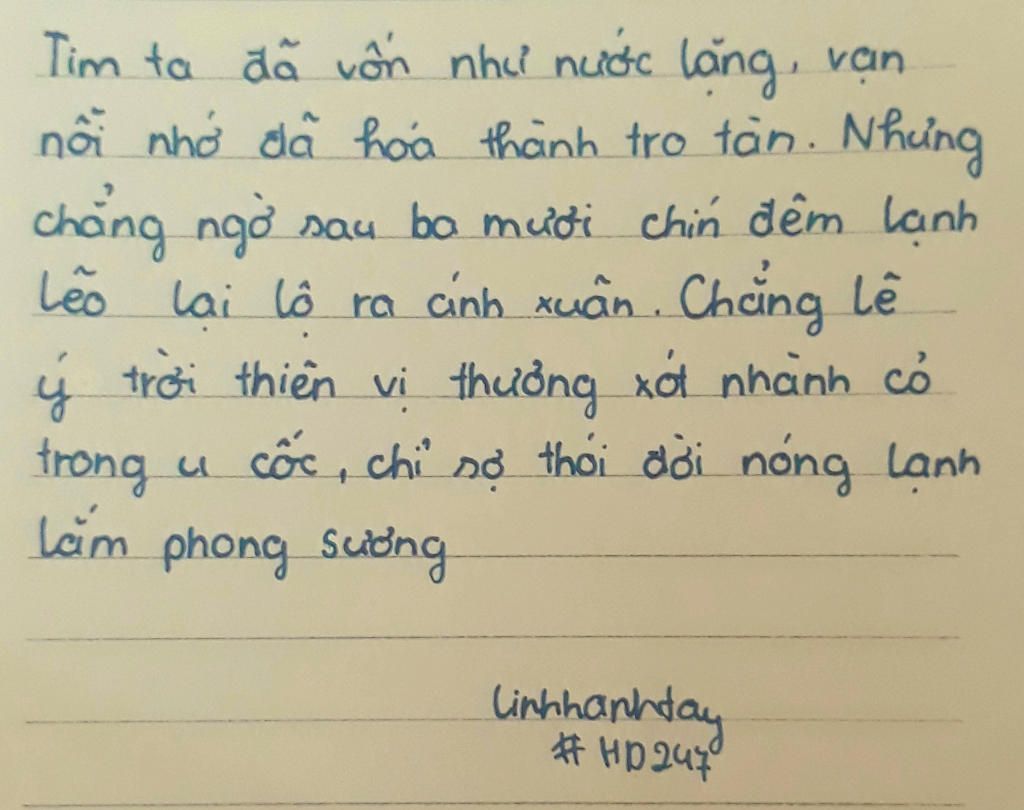 Tim ta đã vốn như nước lặng, vạn
nỗi nhớ đã hóa thành tro tàn. Nhưng
chẳng ngờ sau ba mươi chín đêm lạnh
lẽo lại lộ ra ánh xuân. Chẳng lẽ
ý trời thiên vị thưởng xót nhành cỏ
trong u cốc, chỉ sợ thói đời nóng lạnh
lắm phong sương
linhhanhday
# HD247